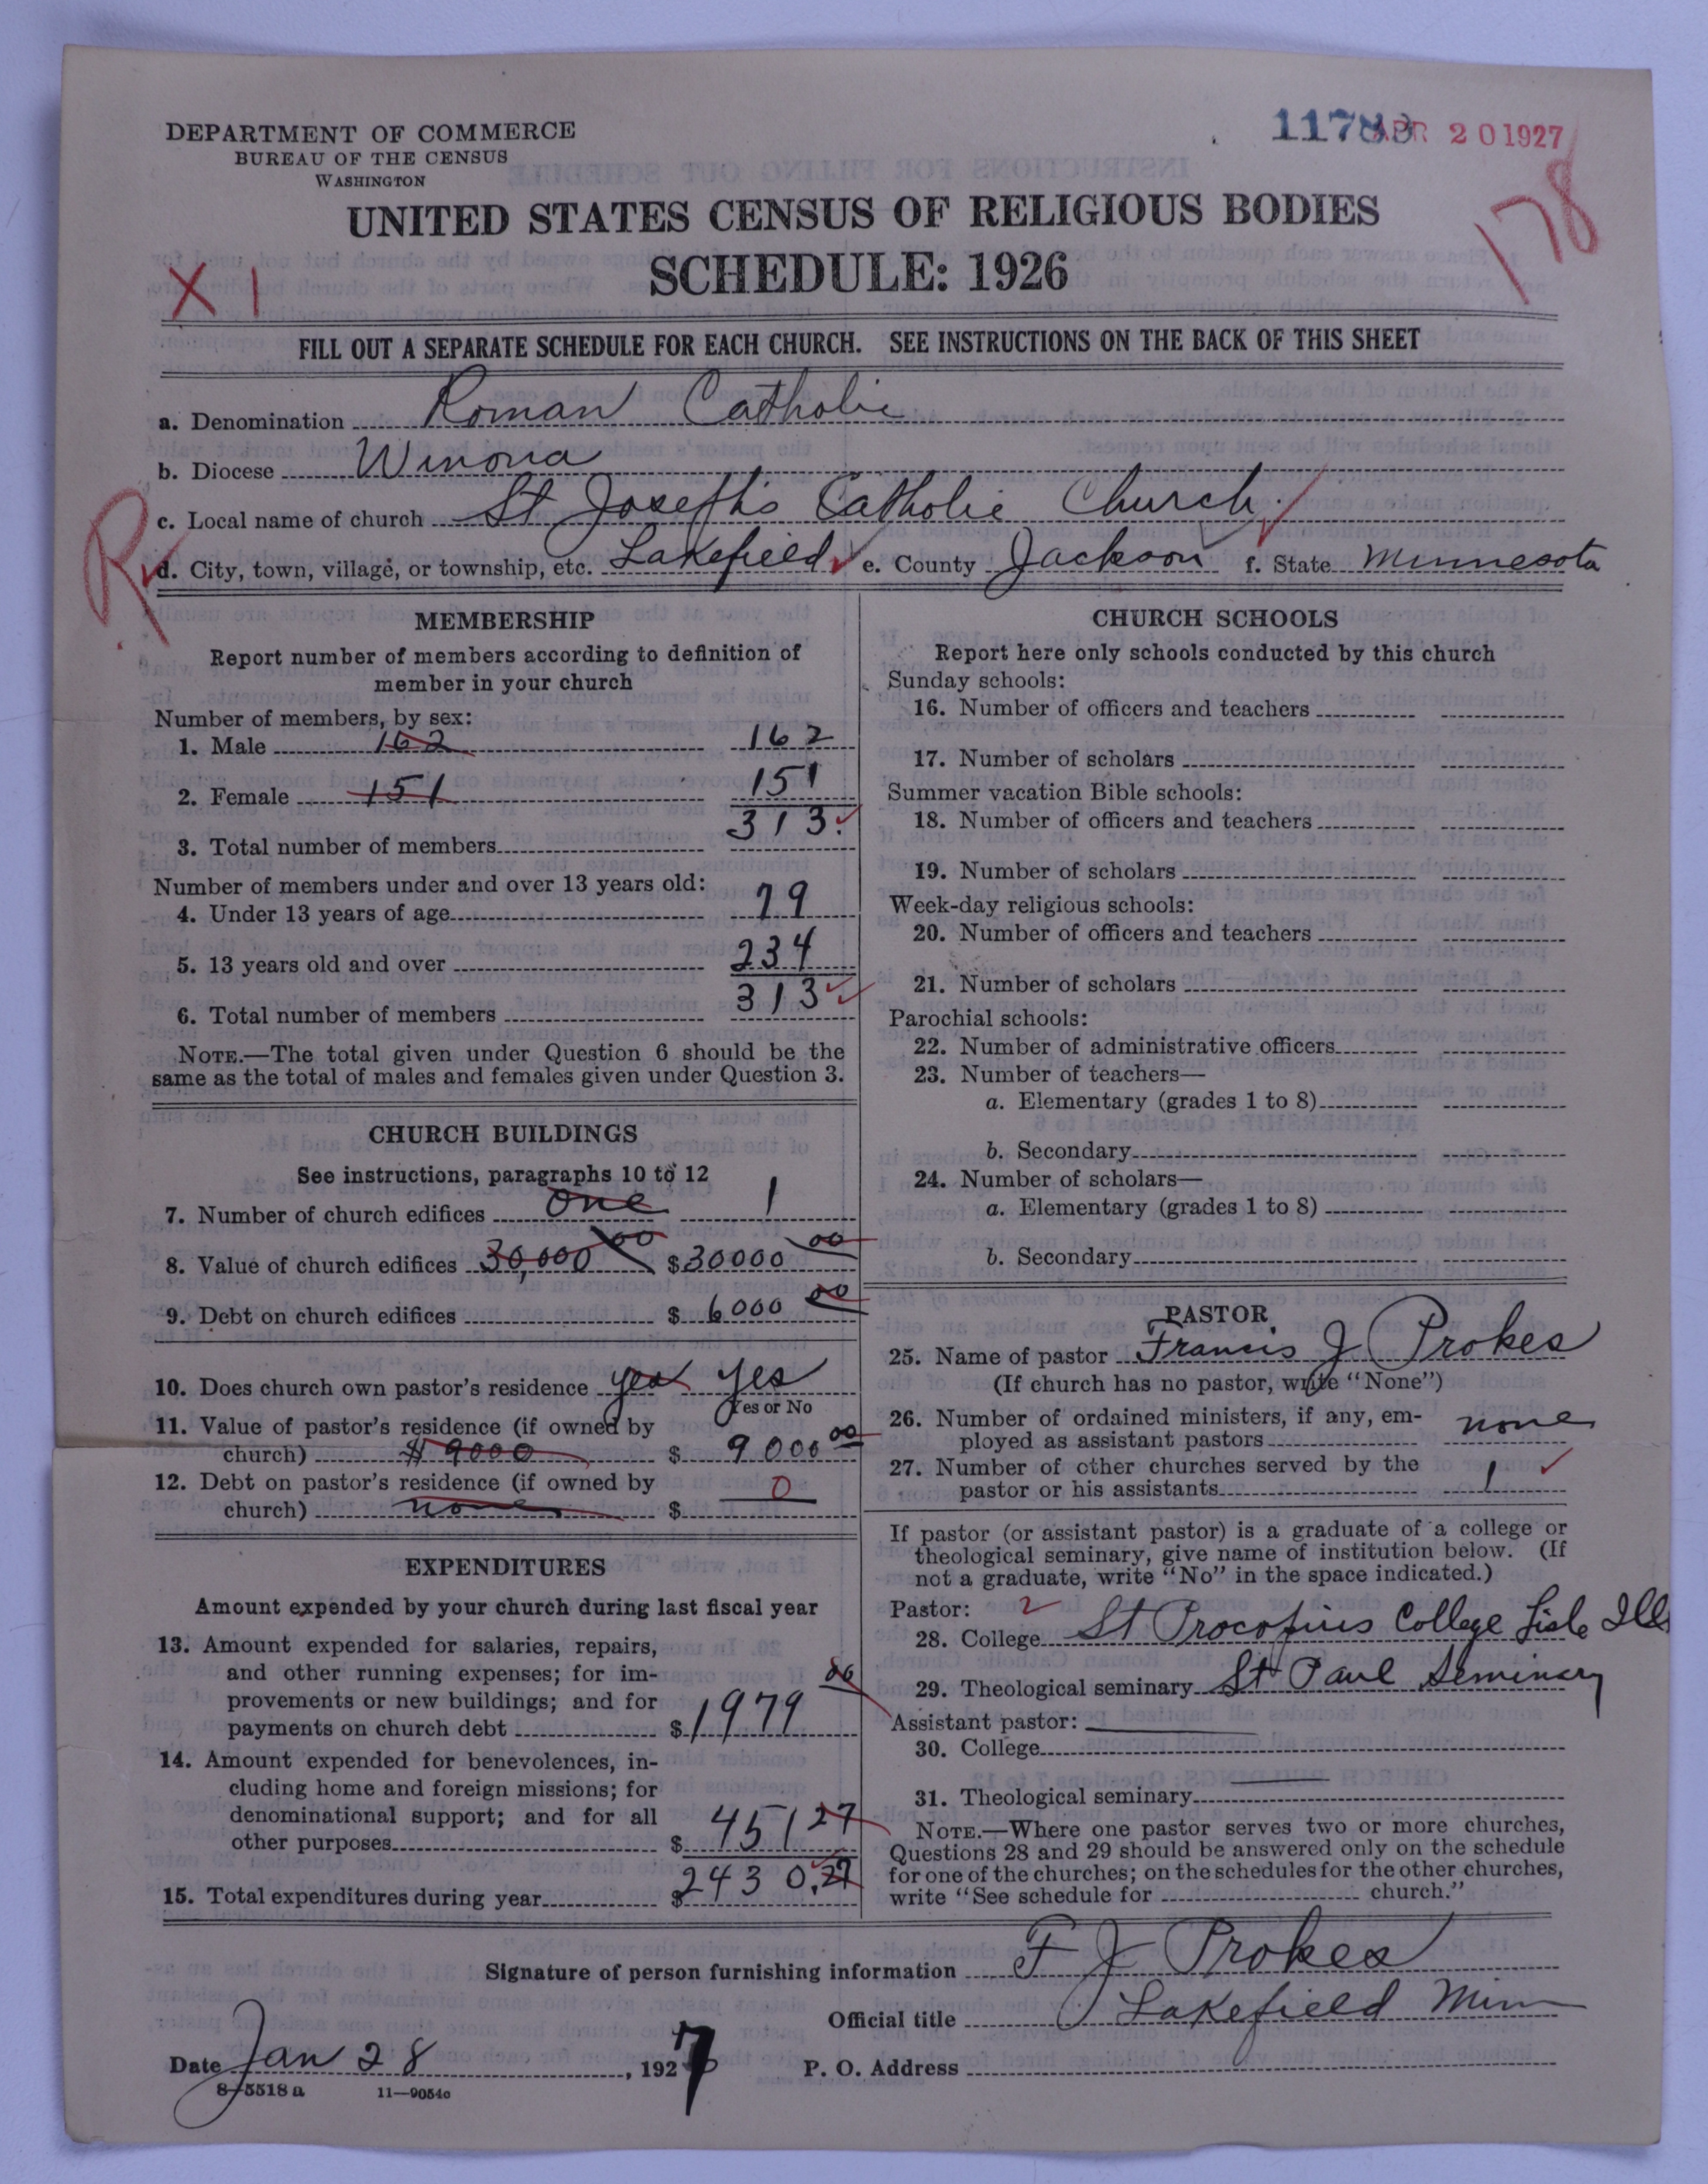 DEPARTMENT OF COMMERCE
BUREAU OF THE CENSUS
WASHINGTON
APR 20 1927
178
UNITED STATES CENSUS OF RELIGIOUS BODIES
SCHEDULE: 1926
X 1
FILL OUT A SEPARATE SCHEDULE FOR EACH CHURCH. SEE INSTRUCTIONS ON THE BACK OF THIS SHEET
a. Denomination Roman Catholic
b. Diocese Winona
c. Local name of church St Joseph's Catholic Church.
R
d. City, town, village, or township, etc. Lakefield e. County Jackson f. State Minnesota
MEMBERSHIP
Report number of members according to definition of
member in your church
Number of members, by sex:
1. Male 162 162
2. Female 151 151
3. Total number of members 313
Number of members under and over 13 years old:
4. Under 13 years of age 79
5. 13 years old and over 234
6. Total number of members 313
NOTE.—The total given under Question 6 should be the
same as the total of males and females given under Question 3.
CHURCH BUILDINGS
See instructions, paragraphs 10 to 12
7. Number of church edifices one 1
8. Value of church edifices 30,000 00 $30000 00
9. Debt on church edifices $ 6000 00
10. Does church own pastor's residence yes Yes
Yes or No
11. Value of pastor's residence (if owned by
church) $9000 $ 9000 00
12. Debt on pastor's residence (if owned by
church) none $ 0
EXPENDITURES
Amount expended by your church during last fiscal year
13. Amount expended for salaries, repairs,
and other running expenses; for im-
provements or new buildings; and for
payments on church debt $1979 00
14. Amount expended for benevolences, in-
cluding home and foreign missions; for
denominational support; and for all
other purposes $ 451 27
15. Total expenditures during year $2430.27
CHURCH SCHOOLS
Report here only schools conducted by this church
Sunday schools:
16. Number of officers and teachers
17. Number of scholars
Summer vacation Bible schools:
18. Number of officers and teachers
19. Number of scholars
Week-day religious schools:
20. Number of officers and teachers
21. Number of scholars
Parochial schools:
22. Number of administrative officers
23. Number of teachers—
a. Elementary (grades 1 to 8)
b. Secondary
24. Number of scholars—
a. Elementary (grades 1 to 8)
b. Secondary
PASTOR
25. Name of pastor Francis J Prokes
(If church has no pastor, write "None")
26. Number of ordained ministers, if any, em-
ployed as assistant pastors none
27. Number of other churches served by the
pastor or his assistants 1
If pastor (or assistant pastor) is a graduate of a college or
theological seminary, give name of institution below. (If
not a graduate, write "No" in the space indicated.)
Pastor: 2
28. College St Procopius College Lisle Ill
29. Theological seminary St Paul Seminary
Assistant pastor:
30. College
31. Theological seminary
NOTE.—Where one pastor serves two or more churches,
Questions 28 and 29 should be answered only on the schedule
for one of the churches; on the schedules for the other churches,
write "See schedule for church."
Signature of person furnishing information F J Prokes
Official title Lakefield Minn
Date Jan 28, 1927 P. O. Address
8-5518 a 11-9054c